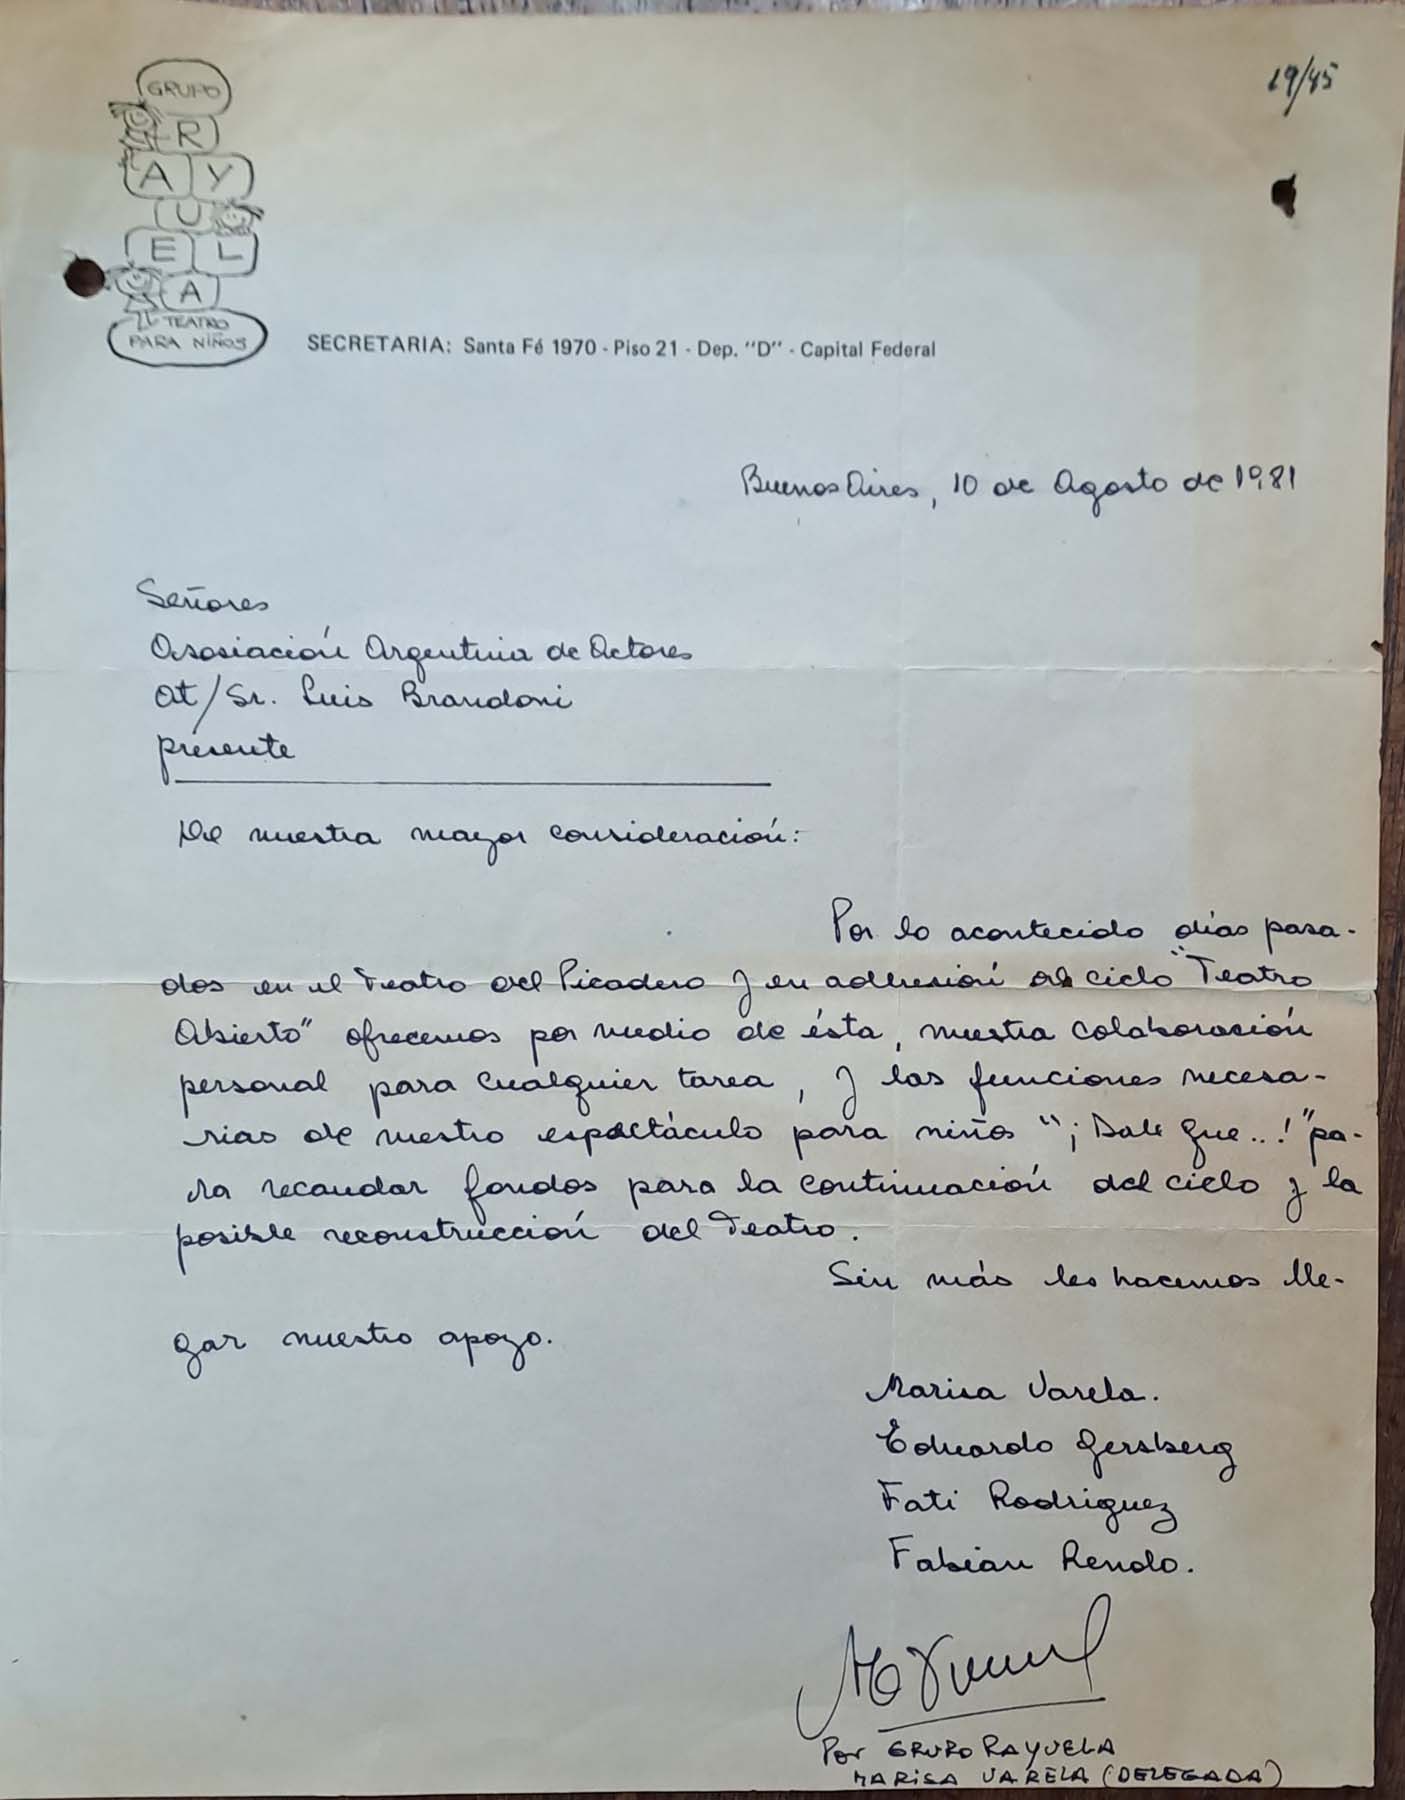 19/45
GRUPO
R
A Y
U
E L
A
TEATRO
PARA NIÑOS
SECRETARIA: Santa Fé 1970 - Piso 21 - Dep. "D" - Capital Federal
Buenos Aires, 10 de Agosto de 1981
Señores
Asosiación Argentina de Actores
At/Sr. Luis Brandoni
presente
De nuestra mayor consideración:
Por lo acontecido días pasa-
dos en el Teatro del Picadero y en adhesión al ciclo "Teatro
Abierto" ofrecemos por medio de ésta, nuestra colaboración
personal para cualquier tarea, y las funciones necesa-
rias de nuestro espectáculo para niños "¡Dale que..!" pa-
ra recaudar fondos para la continuación del ciclo y la
posible reconstrucción del Teatro.
Sin más les hacemos lle-
gar nuestro apoyo.
Marisa Varela.
Eduardo Gersberg
Fati Rodriguez
Fabian Rendo.
Por GRUPO RAYUELA
MARISA VARELA (DELEGADA)